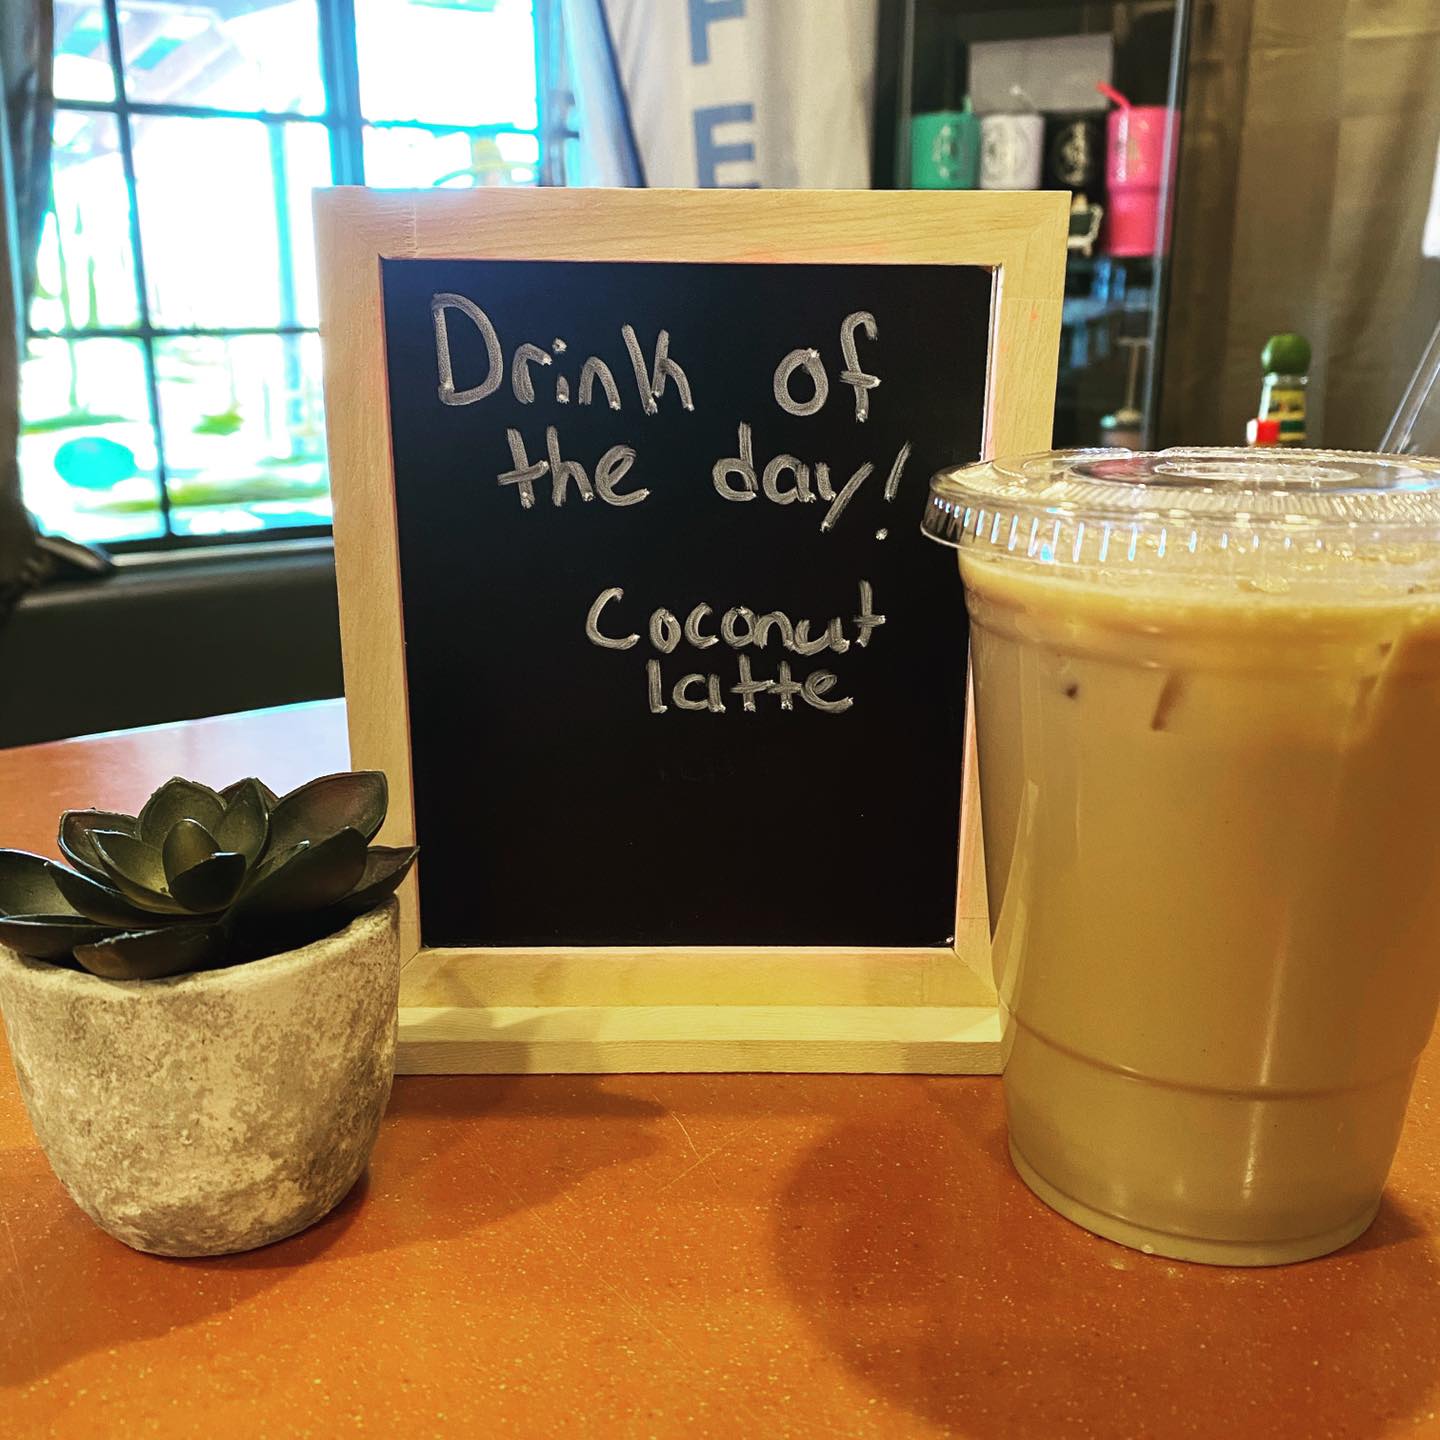 F
E
Drink of
the day!
Coconut
latte